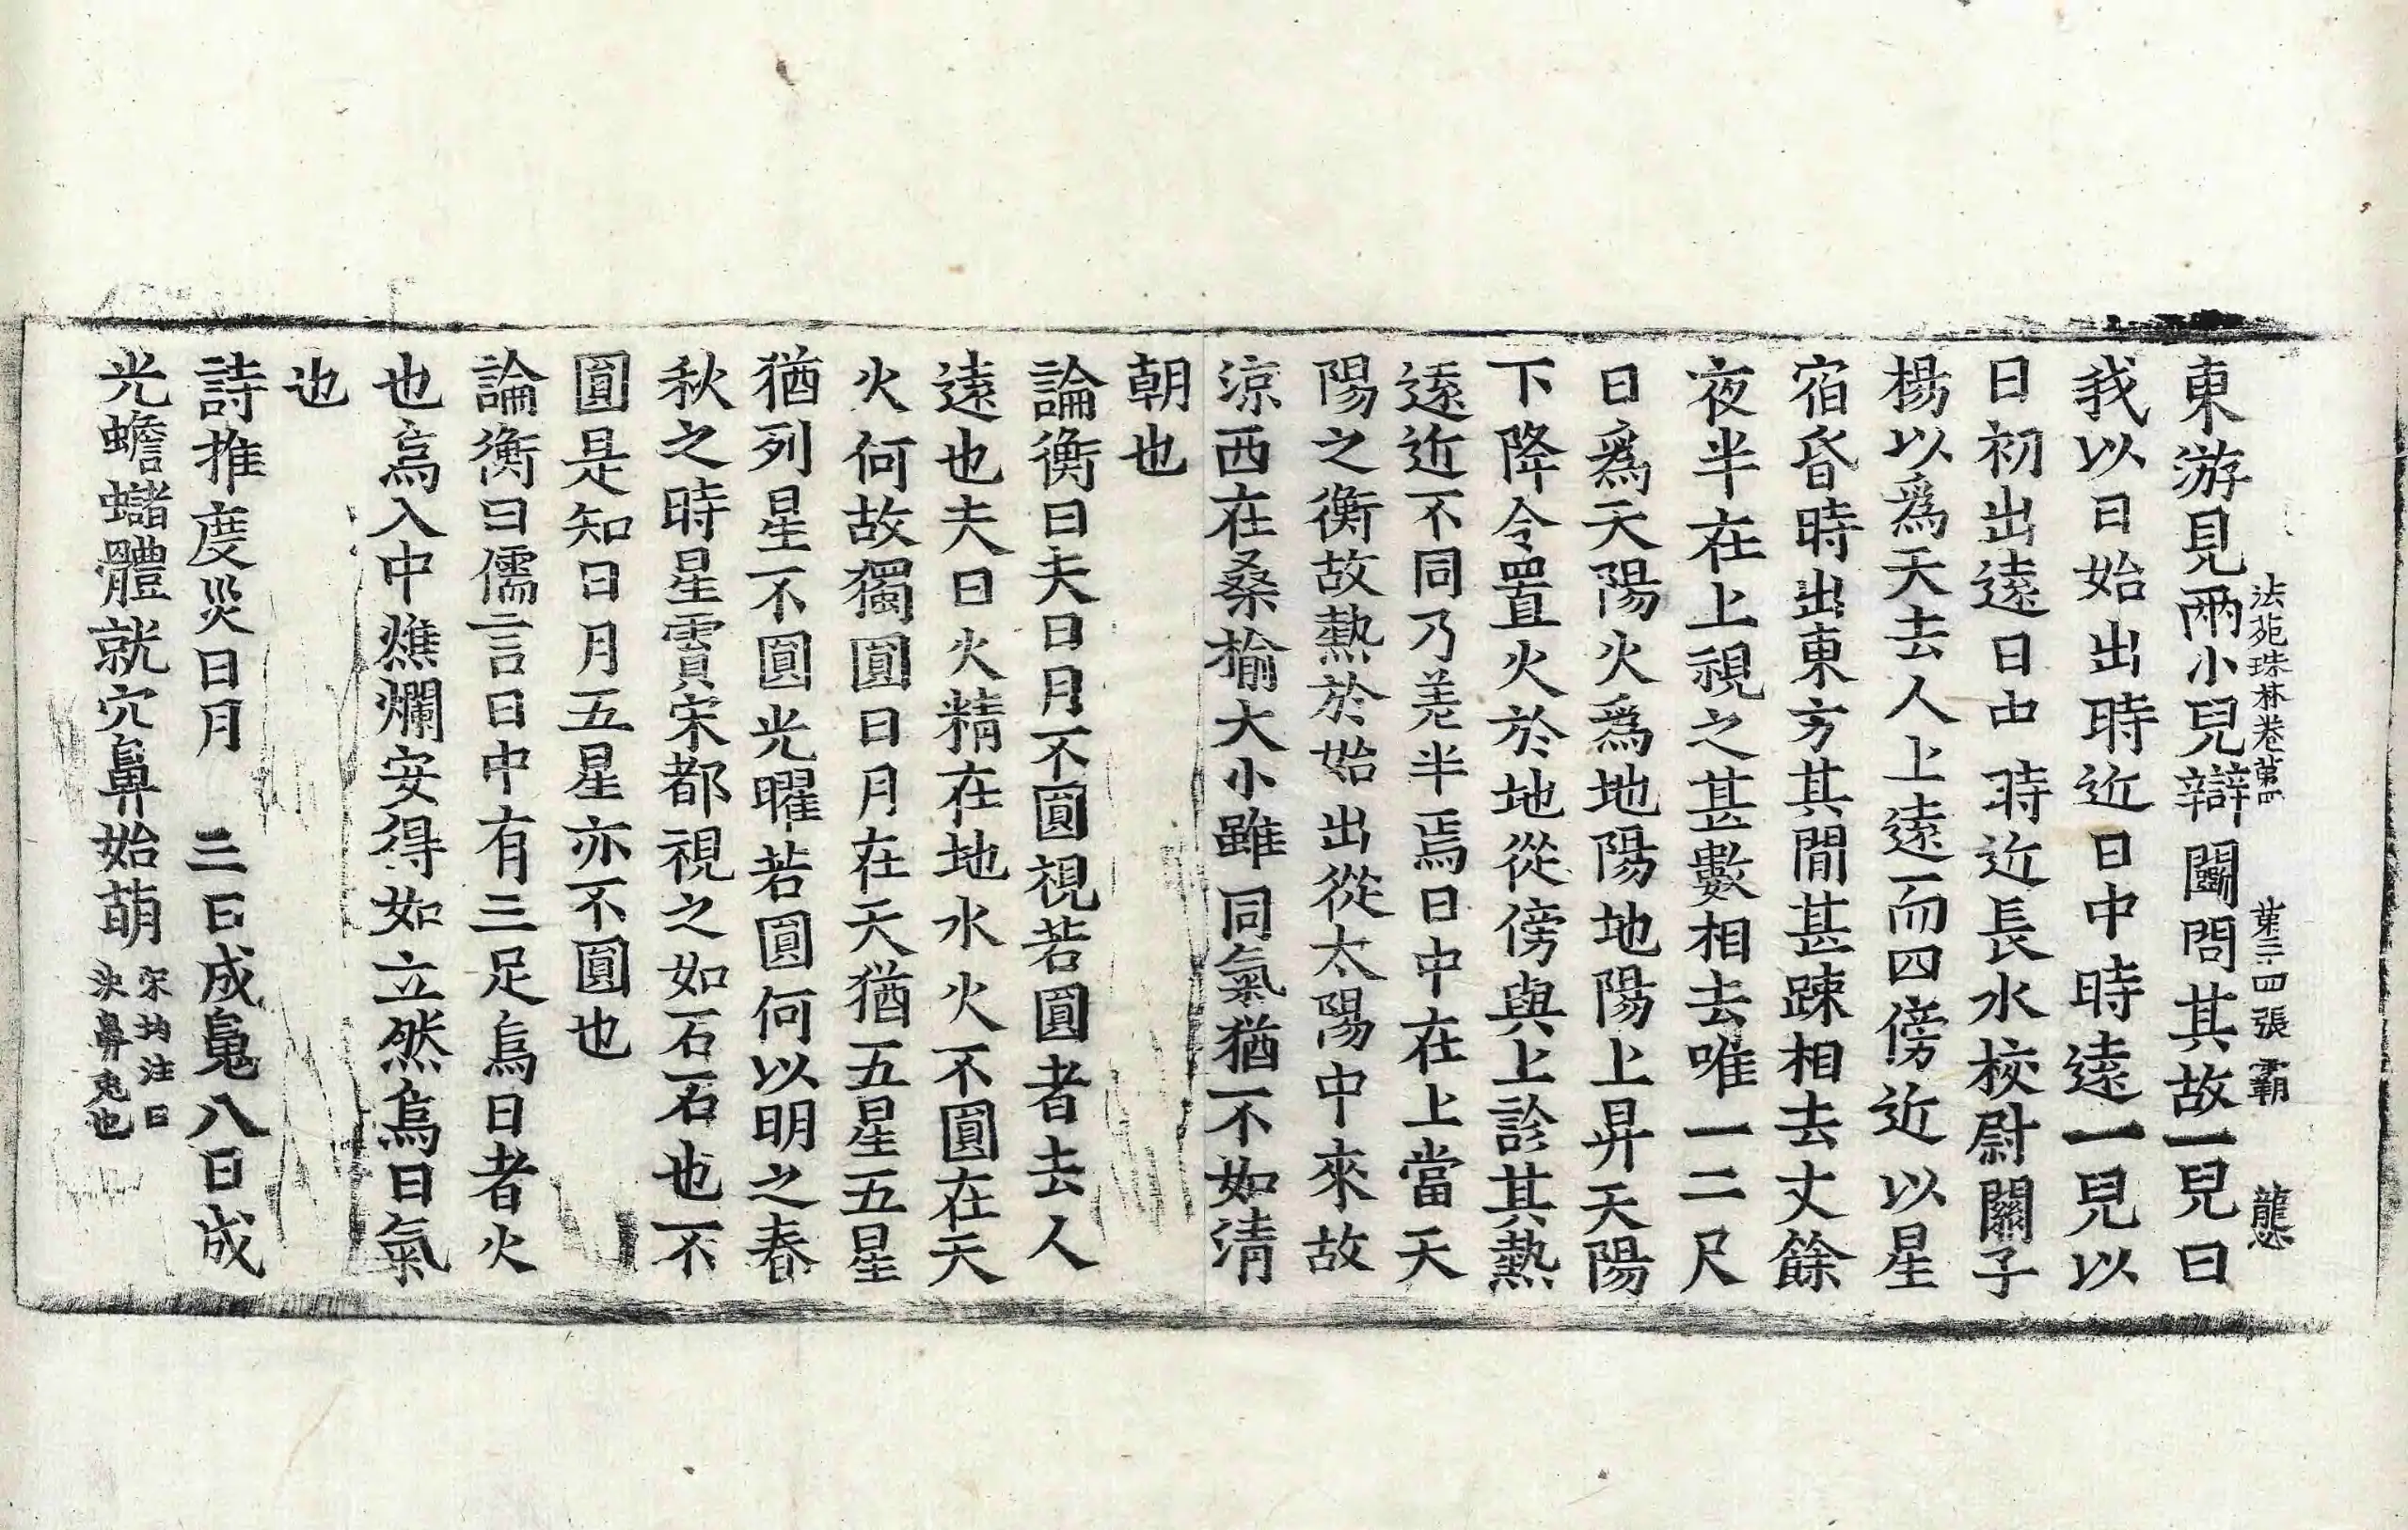 法苑珠林卷第四 第三四張 霸
東游見兩小兒辯鬪問其故一兒曰
我以日始出時近日中時遠一兒以
日初出遠日中時近長水校尉關子
楊以爲天去人上遠而四傍近以星
宿昏時出東方其間甚踈相去丈餘
夜半在上視之甚數相去唯一二尺
日爲天陽火爲地陽地陽上昇天陽
下降今置火於地從傍與上診其熱
遠近不同乃差半焉日中在上當天
陽之衡故熱於始出從太陽中來故
涼西在桑榆大小雖同氣猶不如清
朝也
論衡曰夫日月不圓視若圓者去人
遠也夫日火精在地水火不圓在天
火何故獨圓日月在天猶五星五星
猶列星不圓光曜若圓何以明之春
秋之時星霣宋都視之如石石也不
圓是知日月五星亦不圓也
論衡曰儒言日中有三足烏日者火
也烏入中燋爛安得如立然烏日氣
也
詩推度災日月 三日成魄八日成
光蟾蠩體就穴鼻始萌 宋均注曰决鼻兎也